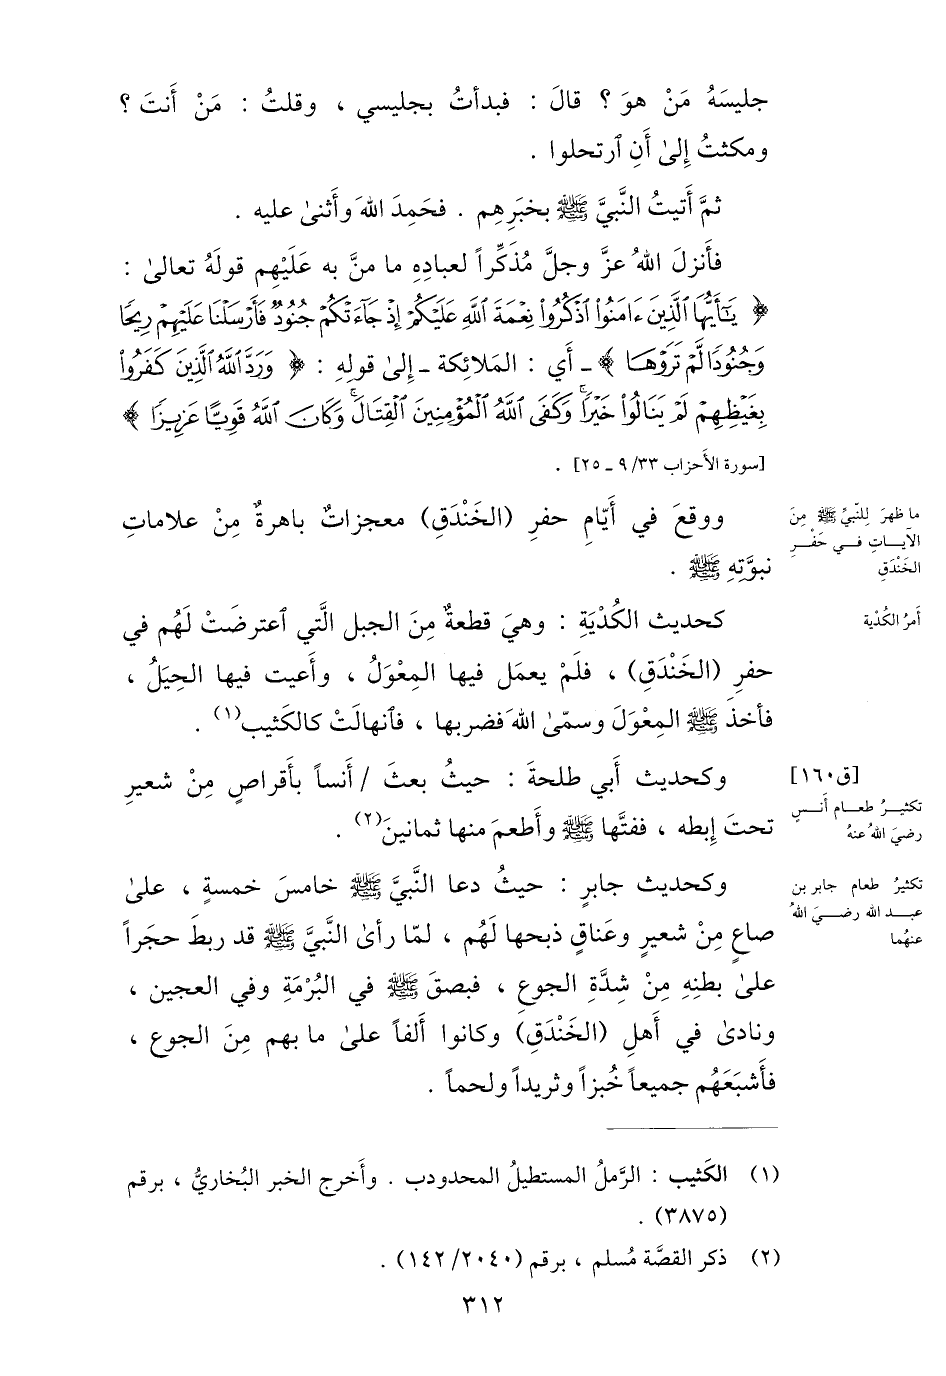 جليسَهُ مَنْ هوَ ؟ قالَ : فبدأتُ بجليسي ، وقلتُ : مَنْ أَنتَ ؟
ومكثتُ إِلىٰ أَنِ ٱرتحلوا .
ثمَّ أَتيتُ النَّبيَّ ﷺ بخبَرِهِم . فحَمِدَ اللهَ وأَثنىٰ عليه .
فأَنزلَ اللهُ عزَّ وجلَّ مُذَكِّراً لعبادِهِ ما منَّ به عَلَيْهِم قولَهُ تعالىٰ :
﴿ يَـٰٓأَيُّهَا ٱلَّذِينَ ءَامَنُوا۟ ٱذْكُرُوا۟ نِعْمَةَ ٱللَّهِ عَلَيْكُمْ إِذْ جَآءَتْكُمْ جُنُودٌ فَأَرْسَلْنَا عَلَيْهِمْ رِيحًا
وَجُنُودًا لَّمْ تَرَوْهَا ﴾ ـ أَي : الملائكة ـ إِلىٰ قولِهِ : ﴿ وَرَدَّ ٱللَّهُ ٱلَّذِينَ كَفَرُوا۟
بِغَيْظِهِمْ لَمْ يَنَالُوا۟ خَيْرًا ۚ وَكَفَى ٱللَّهُ ٱلْمُؤْمِنِينَ ٱلْقِتَالَ ۚ وَكَانَ ٱللَّهُ قَوِيًّا عَزِيزًا ﴾
[سورة الأَحزاب ٣٣/ ٩ ـ ٢٥] .
ما ظهرَ لِلنَّبيِّ ﷺ مِنَ
الآيـاتِ فـي حَفْـرِ
الخَنْدَقِ
ووقعَ في أَيّامِ حفرِ (الخَنْدَقِ) معجزاتٌ باهرةٌ مِنْ علاماتِ
نبوَّتِهِ ﷺ .
أَمرُ الكُدْية
كحديث الكُدْيَةِ : وهيَ قطعةٌ مِنَ الجبل الَّتي ٱعترضَتْ لَهُم في
حفرِ (الخَنْدَقِ) ، فلَمْ يعمَل فيها المِعْوَلُ ، وأَعيت فيها الحِيَلُ ،
فأَخذَ ﷺ المِعْوَلَ وسمّىٰ اللهَ فضربها ، فٱنهالَتْ كالكَثيب(١) .
[ق١٦٠]
تكثيـرُ طعـام أَنـسٍ
رضيَ اللهُ عنهُ
وكحديث أَبي طلحةَ : حيثُ بعثَ / أَنساً بأَقراصٍ مِنْ شعيرٍ
تحتَ إِبطه ، ففتَّها ﷺ وأَطعمَ منها ثمانينَ(٢) .
تكثيرُ طعام جابر بن
عبـد الله رضـيَ اللهُ
عنهُما
وكحديث جابرٍ : حيثُ دعا النَّبيَّ ﷺ خامسَ خمسةٍ ، علىٰ
صاعٍ مِنْ شعيرٍ وعَناقٍ ذبحها لَهُم ، لمّا رأىٰ النَّبيَّ ﷺ قد ربطَ حجَراً
علىٰ بطنِهِ مِنْ شِدَّةِ الجوعِ ، فبصقَ ﷺ في البُرْمَةِ وفي العجين ،
ونادىٰ في أَهلِ (الخَنْدَقِ) وكانوا أَلفاً علىٰ ما بهم مِنَ الجوع ،
فأَشبَعَهُم جميعاً خُبزاً وثريداً ولحماً .
(١) الكَثيب : الرَّملُ المستطيلُ المحدودب . وأَخرج الخبر البُخاريُّ ، برقم
(٣٨٧٥) .
(٢) ذكر القصَّة مُسلم ، برقم (٢٠٤٠/ ١٤٢) .
٣١٢